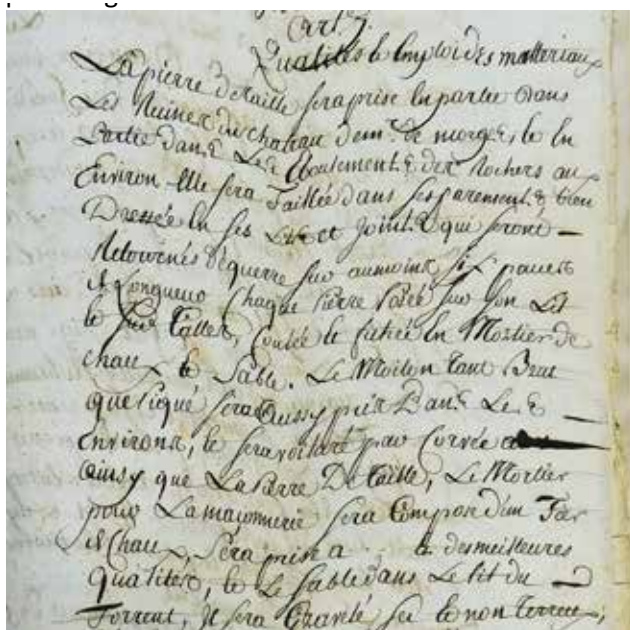 Art. 7.
Qualités et Employ des matteriaux
La pierre de taille sera prise en partie dans
Les Ruines du chateau de mr. de morges, et en
Partie dans Les Eboulements des Rochers aux
Environs. Elle sera Taillée dans ses parements bien
Dressée en ses Lits et Joints qui seront
Retournés d'équerre sur aumoins six pouces
de Longueur Chaque Pierre Posée sur son Lit
et sur Calles, Coulée et fichée en Mortier de
chaux et Sable. Le Moilon tant Brut
que Piqué sera Aussy pris Dans Les
Environs, et sera voituré par Corvée
Ainsy que La Pierre De taille, Le Mortier
pour La maçonnerie sera Composé d'un Tiers
de Chaux, Sera prise a des meilleures
qualités, et Le Sable dans Le lit du
Torrent, Il sera Gravelé sec et non terreux,